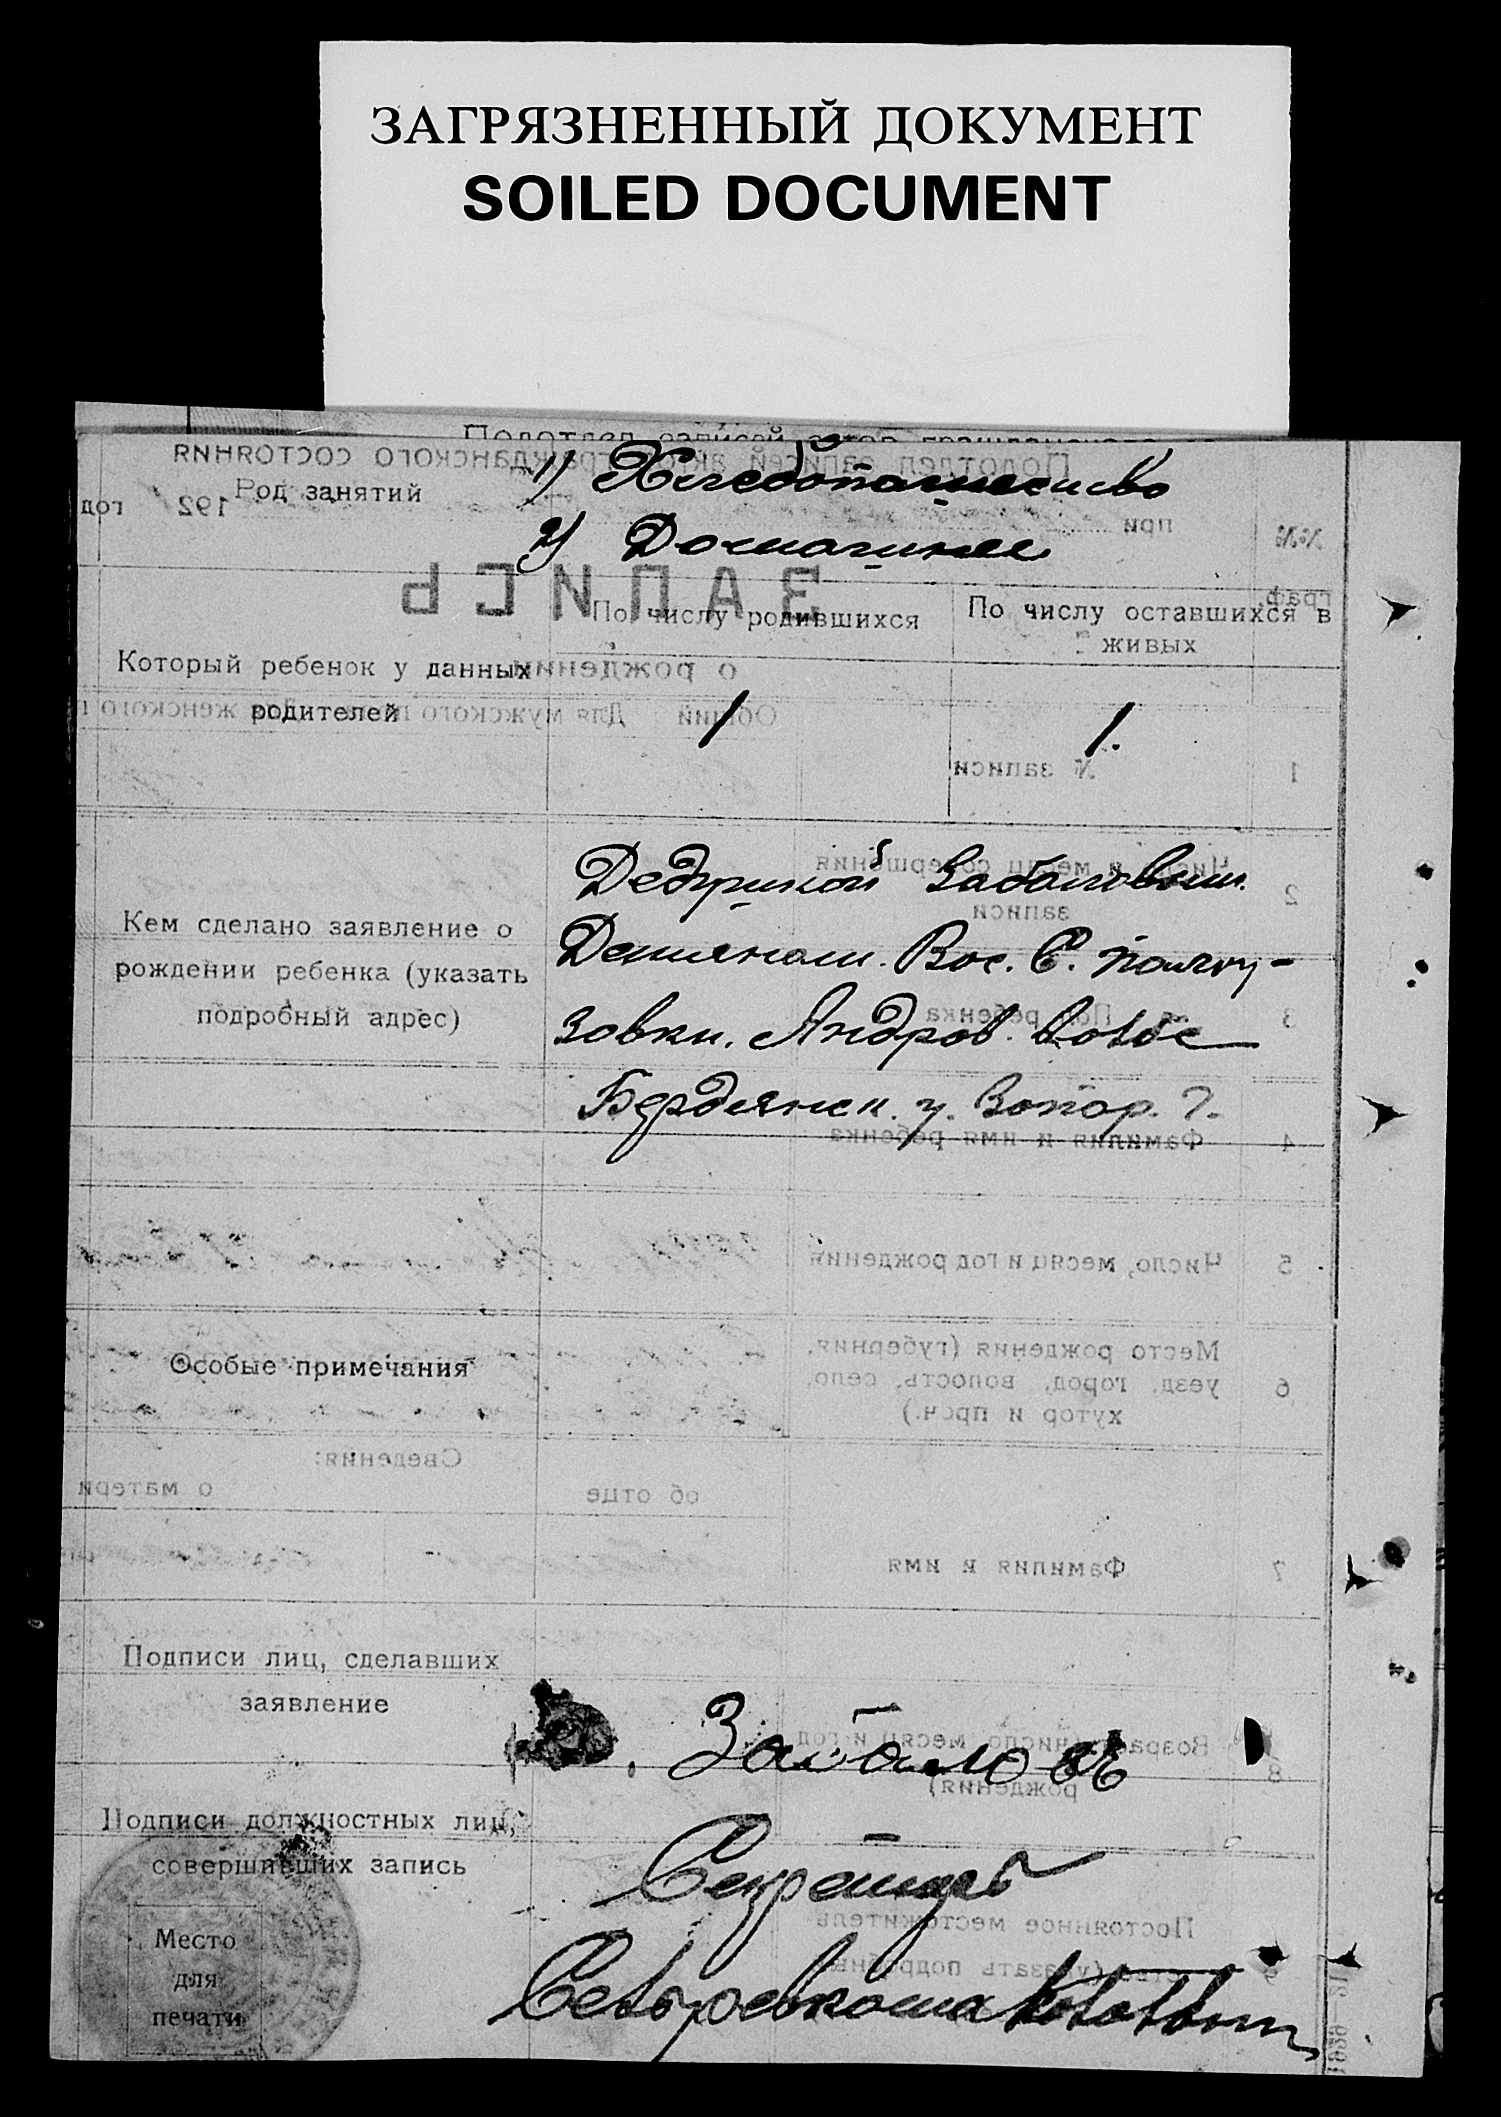 ЗАГРЯЗНЕННЫЙ ДОКУМЕНТ
SOILED DOCUMENT
Подотдел записей актов гражданского состояния
Род занятий
1) Хлебопашество
192 год
2) Домашнее
при
№№
граф.
ЗАПИСЬ
о рождении
По числу родившихся
По числу оставшихся в
живых
Который ребенок у данных
родителей
Общий
Для мужского
женского
1
1.
№ записи
1
Число и месяц совершения
записи
2
Кем сделано заявление о
рождении ребенка (указать
подробный адрес)
Дедушкой Забаловым
Вос. С.
зовки. Андров. волос
Бердянск. у. Запор. Г.
Пол ребенка
3
Фамилия и имя ребенка
4
Число, месяц и год рождения
5
Особые примечания
Место рождения (губерния,
уезд, город, волость, село,
хутор и проч.)
6
Сведения:
об отце
о матери
Фамилия и имя
7
Подписи лиц, сделавших
заявление
Забаловъ
Возраст (число, месяц и год
рождения)
8
Подписи должностных лиц,
совершивших запись
Секретарь
Постоянное местожитель
(указать подробный
9
Место
для
печати